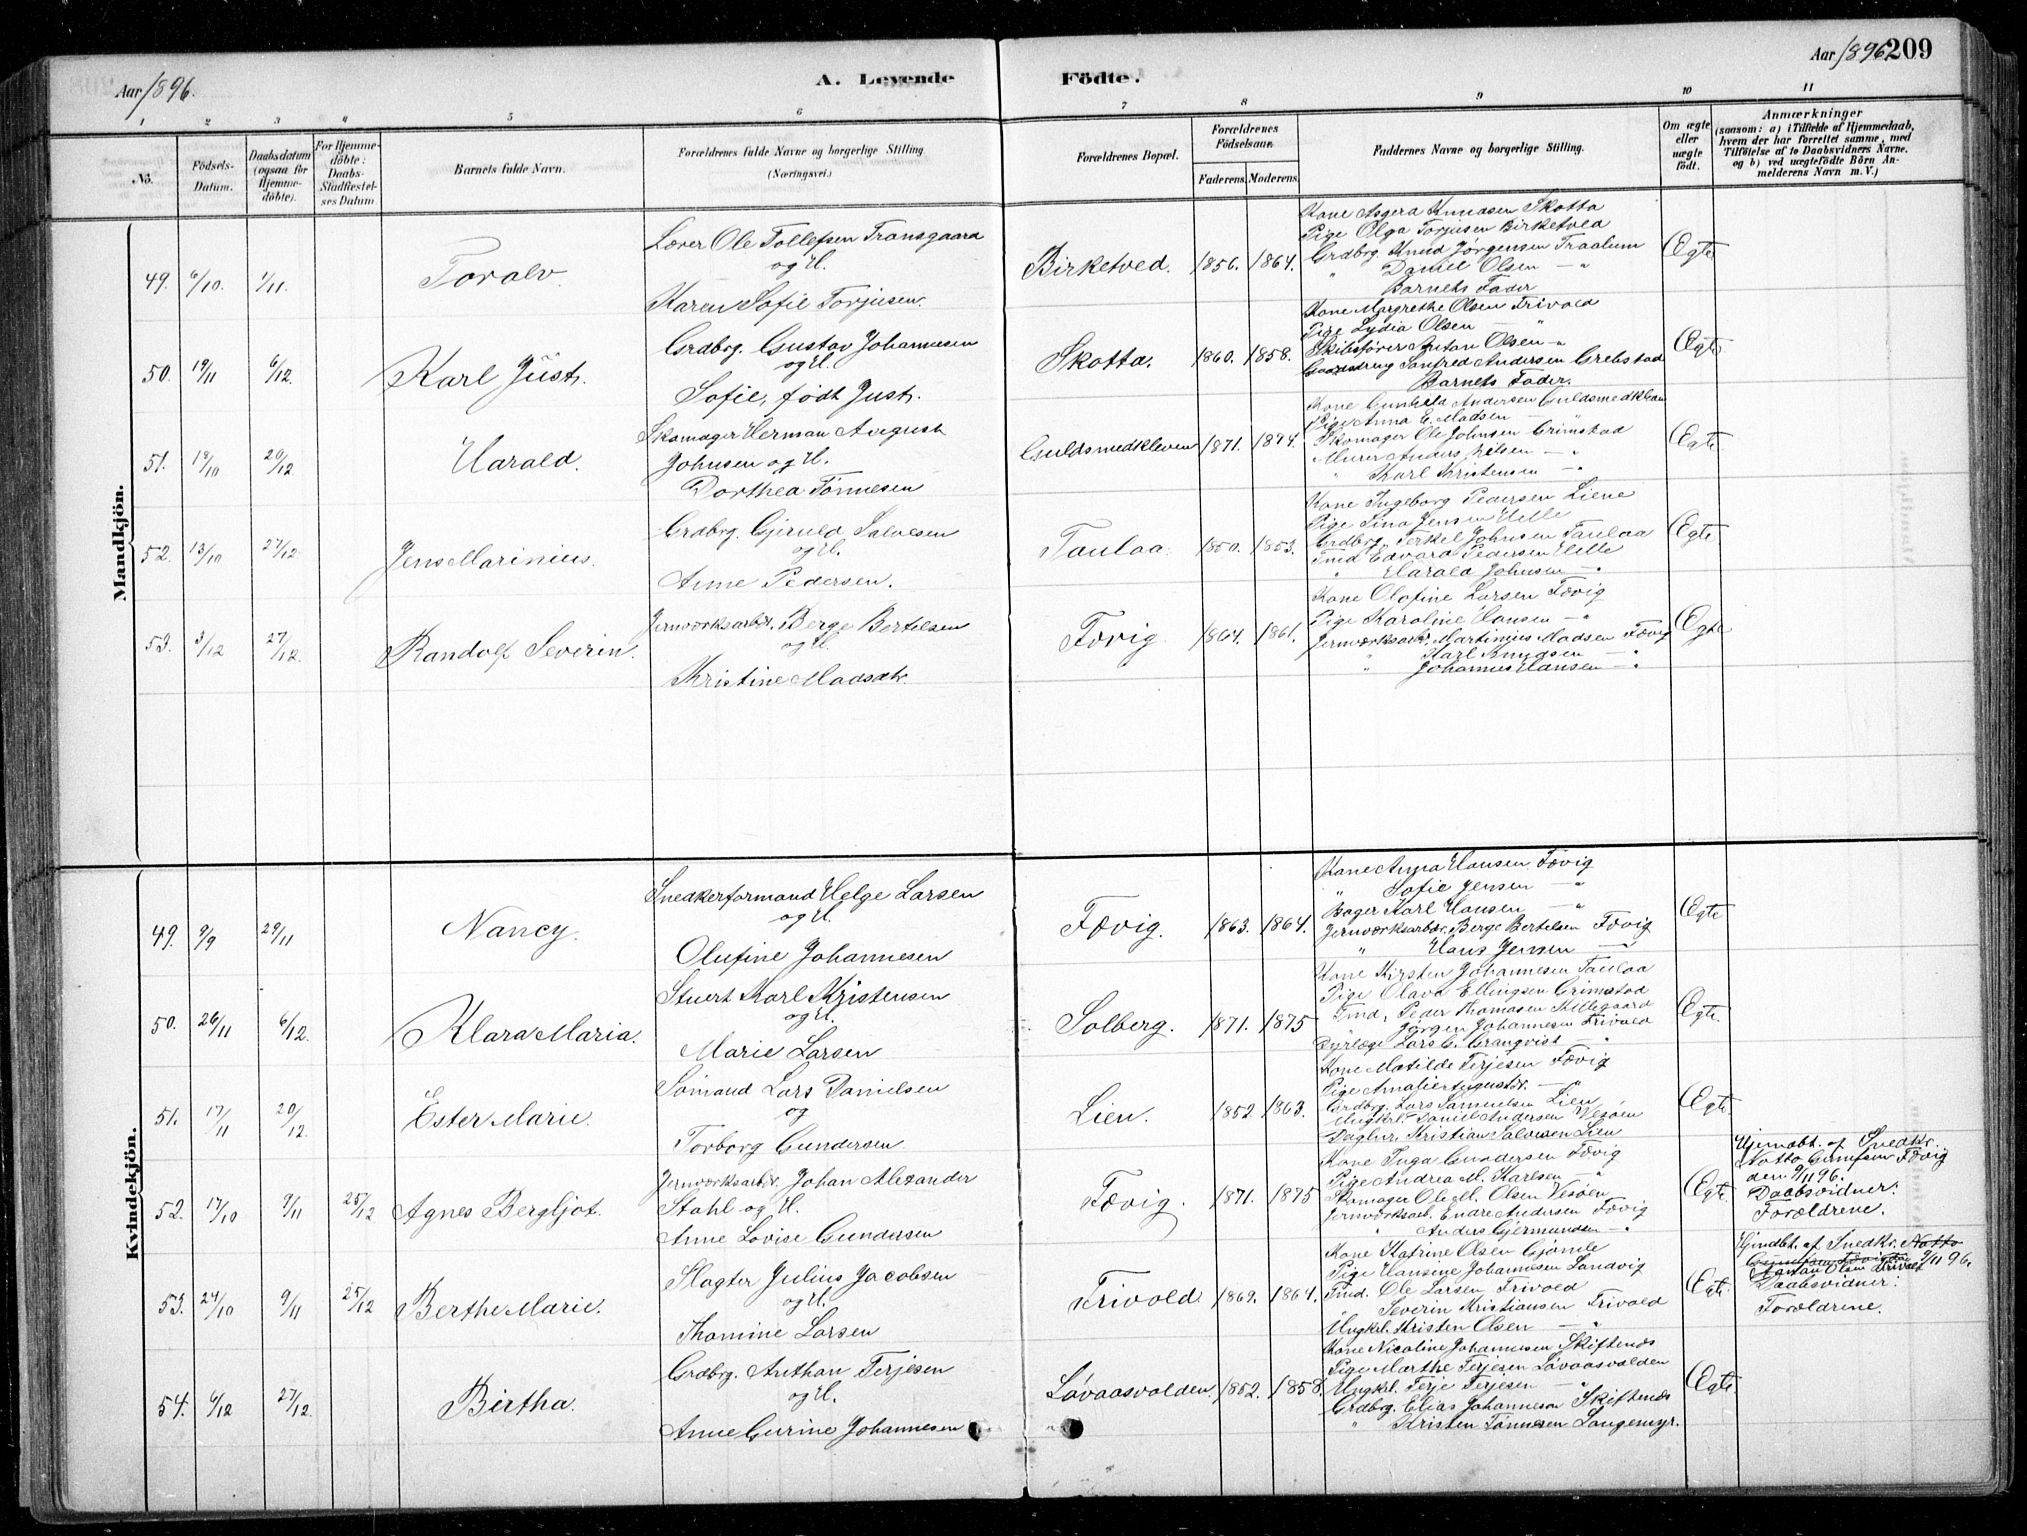 Aar 1896.
A. Levende Födte.
Aar 1896. 209
1 2 3 4 5 6 7 8 9 10 11
No.
Födsels-Datum.
Daabsdatum (ogsaa for Hjemme-döbte).
For Hjemme-döbte: Daabs-Stadfæstel-ses Datum.
Barnets fulde Navn.
Forældrenes fulde Navne og borgerlige Stilling. (Næringsvei.)
Forældrenes Bopæl.
Forældrenes Födselsaar.
Faderens. Moderens.
Faddernes Navne og borgerlige Stilling.
Om ægte eller uægte födt.
Anmærkninger
(saasom: a) i Tilfælde af Hjemmedaab,
hvem der har forrettet samme, med
Tilföielse af to Daabsvidners Navne.
og b) ved uægtefödte Börn An-
melderens Navn m. V.)
Mandkjön.
49. 6/10. 1/11. Toralv.
Lærer Ole Tollefsen Transgaard
og H.
Karen Sofie Torjusen.
Birketved. 1856. 1864.
Kone Asgera Knudsen Skotta
Pige Olga Torjusen Birketved
Grdbrg. Knud Jørgensen Traalum
" Daniel Olsen — "
Barnets Fader
Ægte
50. 19/11 6/12. Karl Just.
Grdbrg. Gustav Johannesen
og H.
Sofie, født Just.
Skotta. 1860. 1858.
Kone Margrethe Olsen Trivold
Pige Lydia Olsen — "
Skibsfører Anton Olsen — "
Sanfred Andersen Grebstad
Barnets Fader.
Ægte
51. 18/10 20/12 Harald.
Skomager Herman August
Johnsen og H.
Dorthea Tønnesen
Guldsmedkleven 1871. 1874.
Kone Gunhild Andersen Guldsmedkleven
Pige Anna E. Madsen — "
Skomager Ole Johnsen Grimstad
Murer Anders Nilsen — "
" Karl Kristensen — "
Ægte
52. 13/10 27/12. Jens Marinius.
Grdbrg. Gjeruld Salvesen
og H.
Anne Pedersen.
Taulaa. 1850. 1853.
Kone Ingeborg Pedersen Liene
Pige Lina Jensen Hille
Grdbrg. Terkel Johnsen Taulaa
Tmd Edvard Pedersen Hille
" Harald Johnsen — "
Ægte
53. 3/12 27/12. Randolf Severin.
Jernværksarbdr. Berge Bertelsen
og H.
Kristine Madsdtr.
Fævig. 1864. 1861.
Kone Olofine Larsen Fævig
Pige Karoline Hansen — "
Jernværksarbr. Martinius Madsen Fævig
" Karl Knudsen — "
" Johannes Hansen — "
Ægte
Kvindekjön.
49. 9/9 29/11 Nancy.
Snedkerformand Helge Larsen
og H.
Olufine Johannesen
Fævig. 1863. 1864.
Kone Anna Hansen Fævig
" Sofie Jensen — "
Bager Karl Hansen — "
Jernværksarbdr. Berge Bertelsen Fævig
" Hans Jensen — "
Ægte
50. 26/11 6/12. Klara Maria.
Stuert Karl Kristensen
og H.
Marie Larsen
Solberg. 1871. 1875
Kone Kirsten Johannesen Taulaa
Pige Olava Ellingsen Grimstad
Tmd. Peder Thomasen Killegaard
" Jørgen Johannesen Trivold
Dyrlæge Lars C. Granqvist "
Ægte.
51. 17/11 20/12. Ester Marie.
Sømand Lars Danielsen
og
Torborg Gundersen
Lien. 1852 1863.
Kone Matilde Terjesen Fævig
Pige Amalie Augustdr. — "
Grdbrg. Lars Samuelsen Lien
Ungkrl. Daniel Andersen Vesøen
Daglnr. Kristian Salvesen Lien
Ægte
52. 17/10 9/11 25/12 Agnes Bergljot.
Jernværksarbdr. Johan Alexander
Stahl og H.
Anne Lovise Gundersen
Fævig. 1871. 1875
Kone Inga Gundersen Fævig
Pige Andrea M. Karlsen "
Skomager Ole M. Olsen Vesøen
Jernværksarb. Endre Andersen Fævig
" Anders Gjermundsen — "
Ægte
Hjemdbt. af Snedkr.
Notto Fævig
den 9/11 96.
Daabsvidner:
Forældrene.
53. 24/10 9/11 25/12 Berthe Marie.
Slagter Julius Jacobsen
og H.
Thomine Larsen
Trivold 1869. 1864.
Kone Katrine Olsen Gjømle
Pige Hansine Johannesen Landvig
Tmd. Ole Larsen Trivold
" Severin Kristiansen Trivold
Ungkrl. Kristen Olsen — "
Ægte.
Hjemdbt. af Snedkr. Notto
Anton Olsen Trivold 9/11 96.
Daabsvidner:
Forældrene.
54. 6/12 27/12. Birtha.
Grdbrg. Anthan Terjesen
og H.
Anne Gurine Johannesen
Løvaasvolden. 1852. 1858.
Kone Nicoline Johannesen Skiftenes
Pige Marthe Terjesen Løvaasvolden
Ungkrl. Terje Terjesen — "
Grdbrg. Elias Johannesen Skiftenes
" Kristen Tønnesen Langemyr.
Ægte